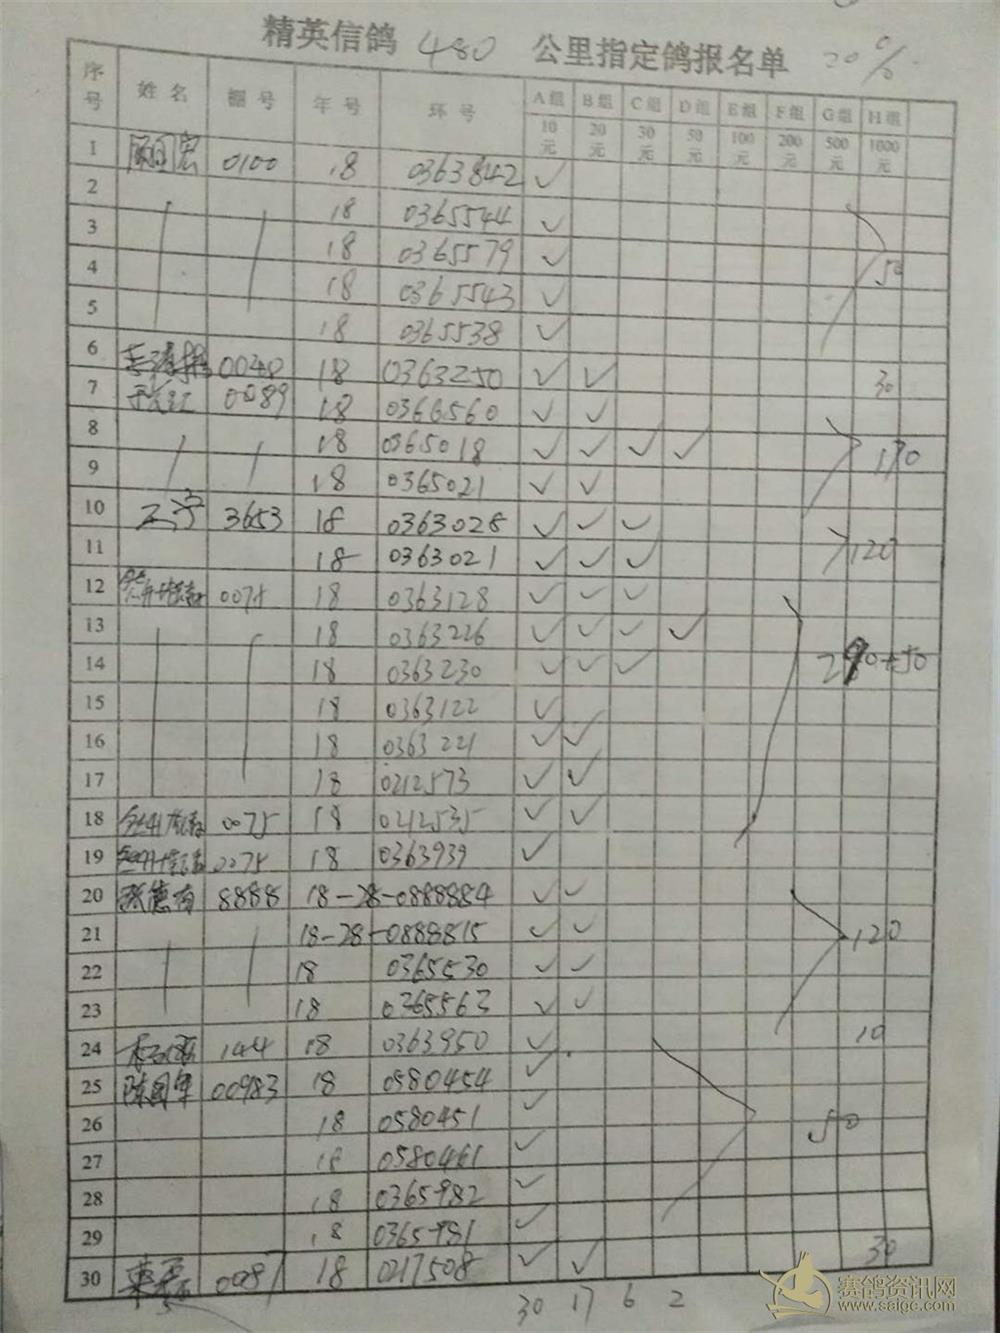 精英信鸽 480 公里指定鸽报名单 20%
序号 姓名 棚号 年号 环号 A组 B组 C组 D组 E组 F组 G组 H组
10元 20元 30元 50元 100元 200元 500元 1000元
1 0100 18 0363842 ✓
2 18 0365544 ✓
3 18 0365579 ✓ 50
4 18 0365543 ✓
5 18 0365538 ✓
6 0040 18 0363250 ✓ ✓ 30
7 0089 18 0366560 ✓ ✓
8 18 0365018 ✓ ✓ ✓ ✓ 170
9 18 0365021 ✓ ✓
10 王宁 3653 18 0363028 ✓ ✓ ✓
11 18 0363021 ✓ ✓ ✓ 120
12 0075 18 0363128 ✓ ✓ ✓
13 18 0363226 ✓ ✓ ✓ ✓
14 18 0363230 ✓ ✓ ✓
15 18 0363122 ✓
16 18 0363221 ✓ ✓
17 18 0212573 ✓ ✓
18 0075 18 0212535 ✓ ✓
19 0075 18 0363939 ✓
20 张德有 8888 18-28-0888884 ✓ ✓
21 18-28-0888815 ✓ ✓ 120
22 18 0365530 ✓ ✓
23 18 0365563 ✓ ✓
24 144 18 0363950 ✓ 10
25 陈国军 00983 18 0580454 ✓
26 18 0580451 ✓ 50
27 18 0580461 ✓
28 18 0365982 ✓
29 18 0365981 ✓
30 0087 18 0217508 ✓ ✓ 30
30 17 6 2
赛鸽资讯网
www.saige.com